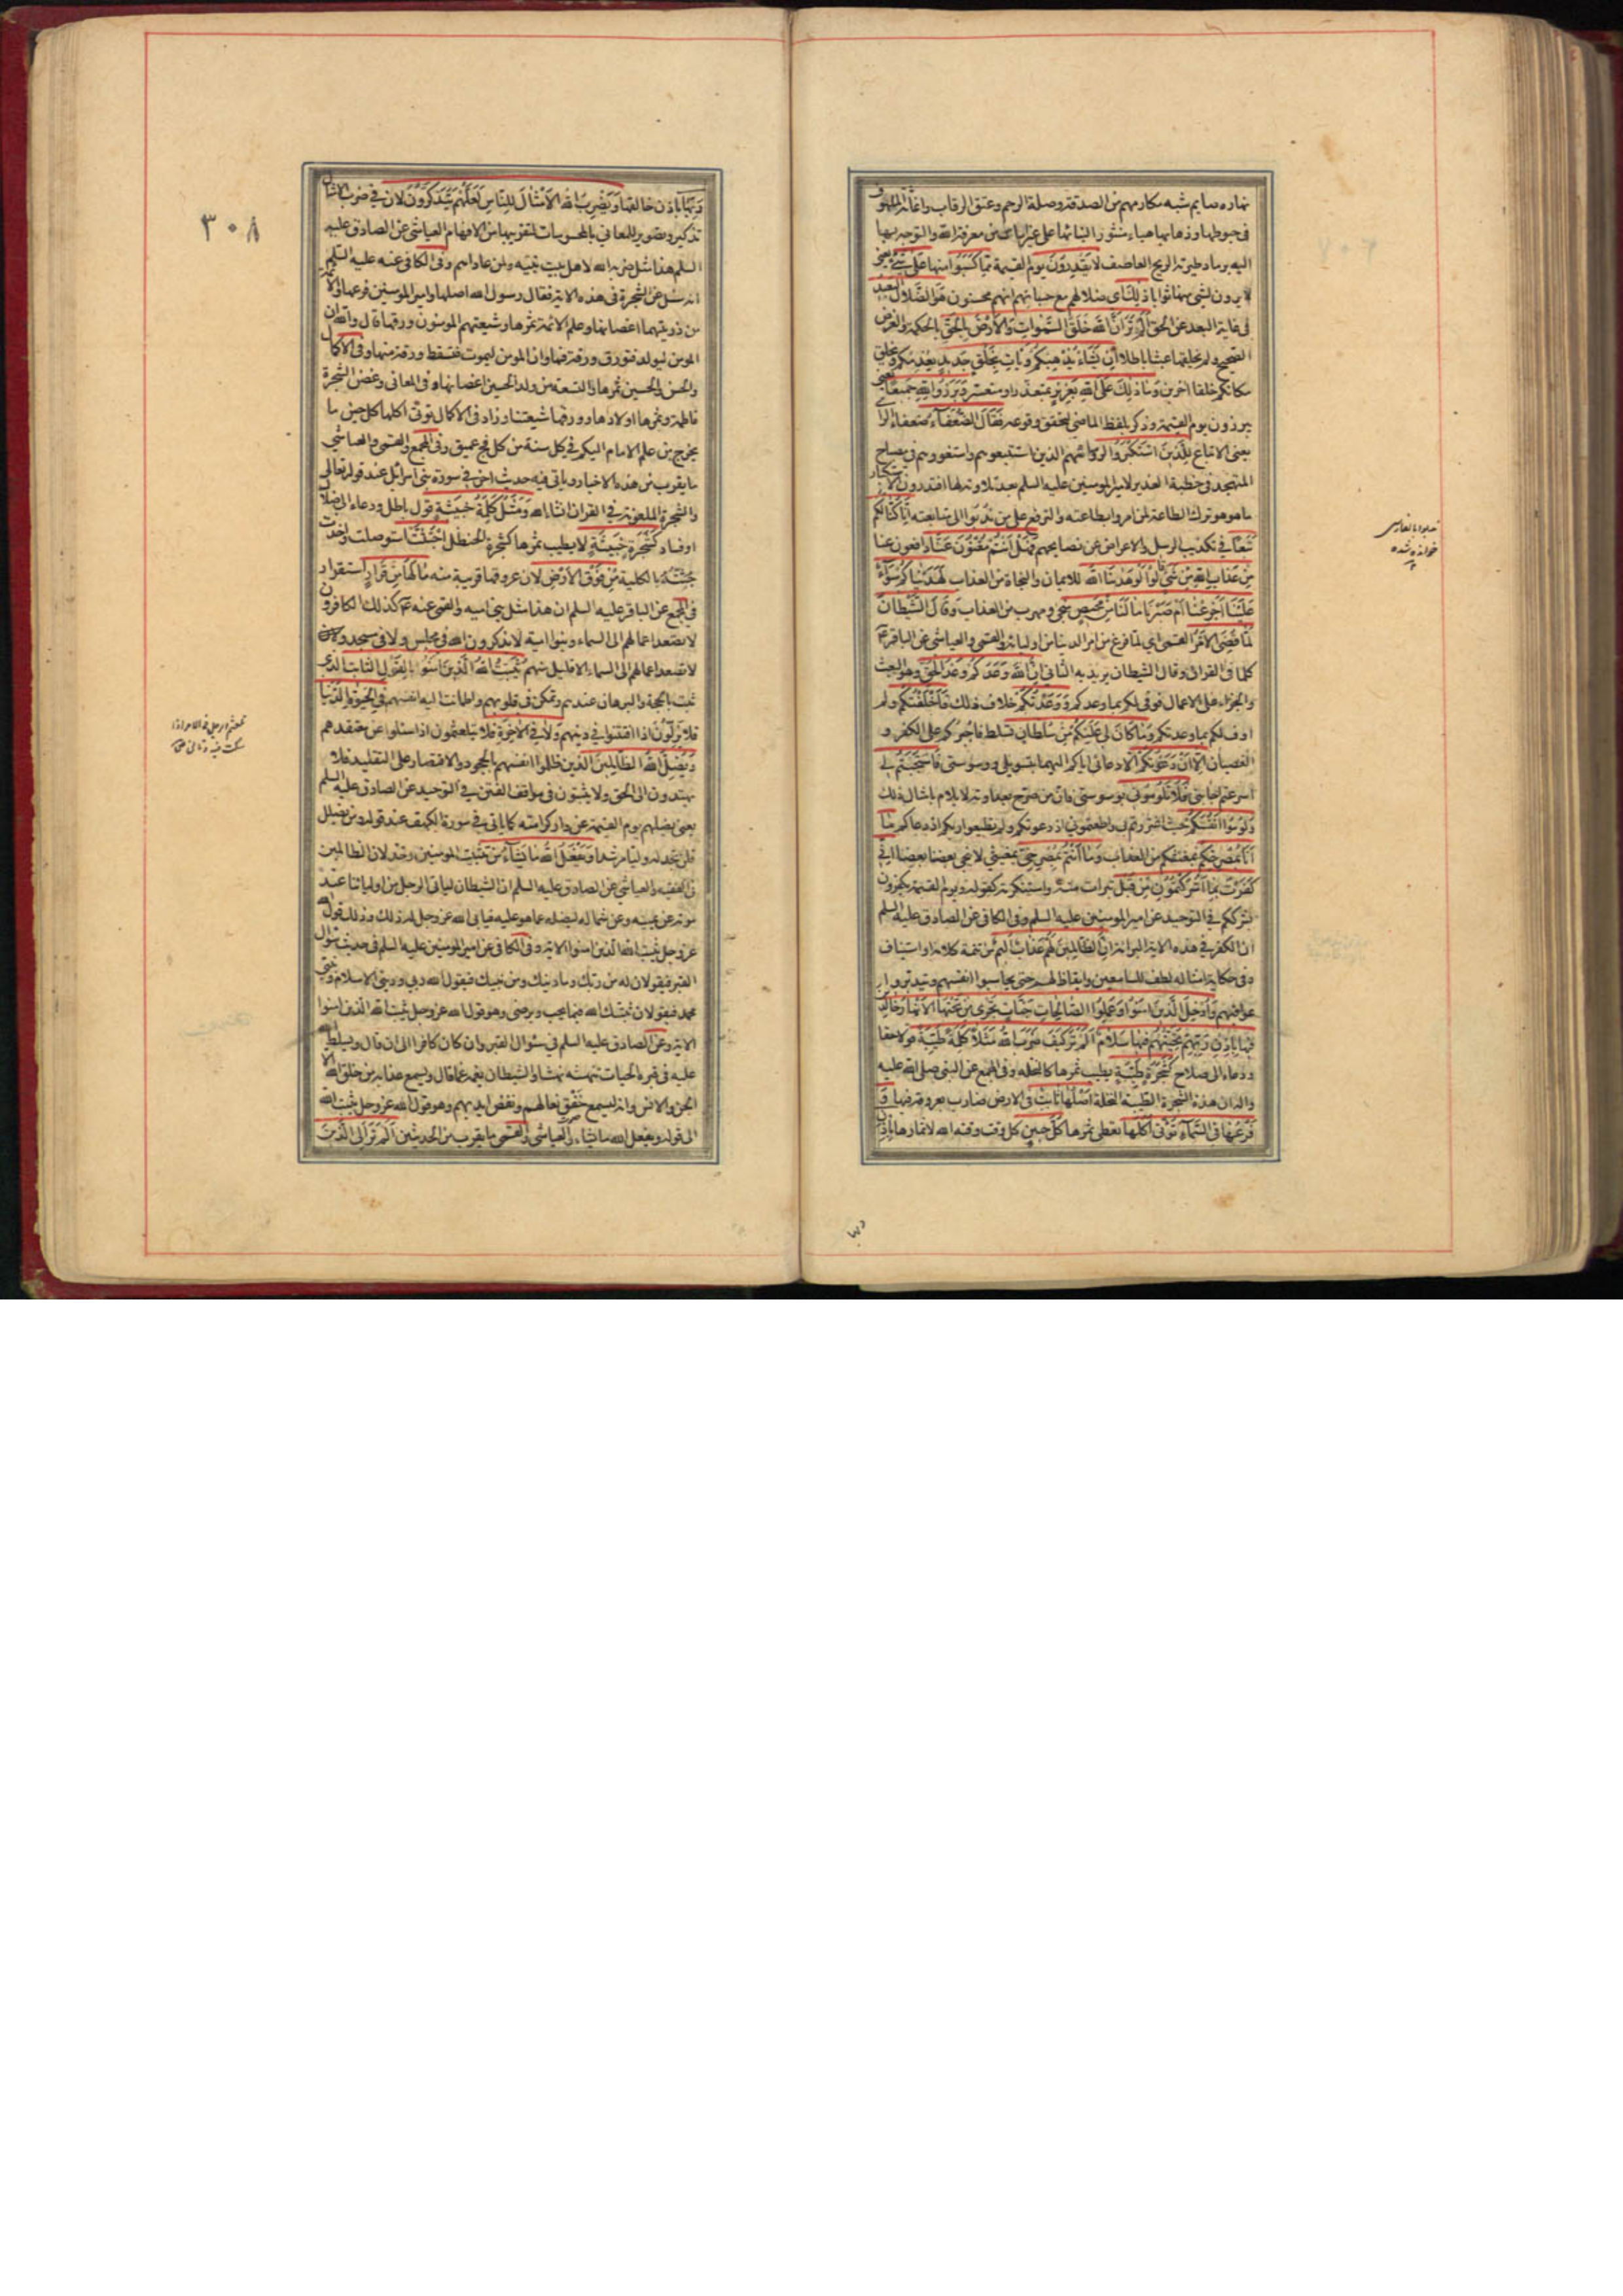 نماره صايم شبه مكارمهم من الصدقة وصلة الرحم وعتق الرقاب واغاثة الملهوف
فى حبوطها وذهابها هباء منثورا لبنائها على غير اساس من معرفة الله والتوجه بها
اليه برماد طيرته الريح العاصف لا يَقْدِرُونَ يوم القيمة مِمّا كَسَبُوا منها عَلى شَئٍ يعنى
لا يرون لشئ منها ثوابا ذٰلِكَ اى ضلالهم مع حسبانهم انهم محسنون هُوَ الضَّلالُ البَعيدُ
فى غاية البعد عن الحق اَلَمْ تَرَ اَنَّ اللهَ خَلَقَ السَّمٰواتِ وَالاَرْضَ بِالحَقِّ بالحكمة والغرض
الصحيح ولم يخلقها عبثا باطلا اِنْ يَشَأْ يُذْهِبْكُمْ وَيَأتِ بِخَلْقٍ جَديدٍ يعدمكم ويخلق
مكانكم خلقا اخرين وَمٰا ذٰلِكَ عَلَى اللهِ بِعَزيزٍ بمتعذر او متعسر وَبَرَزُوا لِلّٰهِ جَميعًا يعنى
يبرزون يوم القيمة وذكر بلفظ الماضى لتحقق وقوعه فَقٰالَ الضُّعَفٰاءُ ضعفاء الراى
يعنى الاتباع لِلَّذينَ اسْتَكْبَرُوا لرؤسائهم الذين استتبعوهم واستغووهم فى مصباح
المتهجد فى خطبة الغدير لامير المومنين عليه السلم بعد تلاوته لها افتدرون الاستكبار
ما هو هو ترك الطاعة لمن امروا بطاعته والترفع على من ندبوا الى متابعته اِنّٰا كُنّٰا لَكُمْ
تَبَعًا فى تكذيب الرسل والاعراض عن نصايحهم فَهَلْ اَنْتُمْ مُغْنُونَ عَنّٰا دافعون عنا
مِنْ عَذٰابِ اللهِ مِنْ شَئٍ قٰالُوا لَوْ هَدٰينَا اللهُ للايمان والنجاة من العذاب لَهَدَيْنٰاكُمْ سَوٰاءٌ
عَلَيْنٰا اَجَزِعْنٰا اَمْ صَبَرْنٰا مٰا لَنٰا مِنْ مَحيصٍ منجى ومهرب من العذاب وَقٰالَ الشَّيْطٰانُ
لَمّٰا قُضِىَ الاَمْرُ القمى اى لما فرغ من امر الدنيا من اوليائه والقمى والعياشى عن الباقر ع
كلما فى القران وقال الشيطان يريد به الثانى اِنَّ اللهَ وَعَدَكُمْ وَعْدَ الحَقِّ وهو البعث
والجزاء على الاعمال فوفى لكم بما وعدكم وَوَعَدْتُكُمْ خلاف ذلك فَاَخْلَفْتُكُمْ ولم
اوف لكم بما وعدتكم وَمٰا كٰانَ لِىَ عَلَيْكُمْ مِنْ سُلْطٰانٍ تسلط فاجبركم على الكفر و
العصيان اِلّٰا اَنْ دَعَوْتُكُمْ الا دعائى اياكم اليهما بتسويلى ووسوستى فَاسْتَجَبْتُمْ لى
اسرعتم اجابتى فَلٰا تَلُومُونى بوسوستى فان من صرح بعداوته لا يلام بامثال ذلك
وَلُومُوا اَنْفُسَكُمْ حيث اغتررتم بى واطعتمونى اذ دعوتكم ولم تطيعوا ربكم اذ دعاكم مٰا
اَنَا بِمُصْرِخِكُمْ بمغيثكم من العذاب وَمٰا اَنْتُمْ بِمُصْرِخِىَّ بمغيثى لا ينجى بعضنا بعضا اِنّى
كَفَرْتُ بِمٰا اَشْرَكْتُمُونِ مِنْ قَبْلُ تبرات منه واستنكرته كقوله ويوم القيمة يكفرون
بشرككم فى التوحيد عن امير المومنين عليه السلم وفى الكافى عن الصادق عليه السلم
ان الكفر فى هذه الاية البراءة اِنَّ الظّٰالِمينَ لَهُمْ عَذٰابٌ اَليمٌ من تتمة كلامه او استيناف
وفى حكاية امثاله لطف للسامعين وايقاظ لهم حتى يحاسبوا انفسهم ويتدبروا
عواقبهم وَاُدْخِلَ الَّذينَ اٰمَنُوا وَعَمِلُوا الصّٰالِحٰاتِ جَنّٰاتٍ تَجْرى مِنْ تَحْتِهَا الاَنْهٰارُ خٰالِدينَ
فيهٰا بِاِذْنِ رَبِّهِمْ تَحِيَّتُهُمْ فيهٰا سَلٰامٌ اَلَمْ تَرَ كَيْفَ ضَرَبَ اللهُ مَثَلًا كَلِمَةً طَيِّبَةً قولا حقا
ودعاء الى صلاح كَشَجَرَةٍ طَيِّبَةٍ يطيب ثمرها كالنخلة وفى المجمع عن النبى صلى الله عليه
واله ان هذه الشجرة الطيبة النخلة اَصْلُهٰا ثٰابِتٌ فى الارض ضارب بعروقه فيها وَ
فَرْعُهٰا فِى السَّمٰاءِ تُؤْتى اُكُلَهٰا تعطى ثمرها كُلَّ حينٍ كل وقت وقته الله لاثمارها بِاِذْنِ
ربها
نديوا بالفارسى
خوانده شده
٣٠٨
رَبِّهٰا باذن خالقها وَيَضْرِبُ اللهُ الاَمْثٰالَ لِلنّٰاسِ لَعَلَّهُمْ يَتَذَكَّرُونَ لان فى ضرب الامثال
تذكير وتصوير للمعانى بالمحسوسات لتقريبها من الافهام العياشى عن الصادق عليه
السلم هذا مثل ضربه الله لاهل بيت نبيه ولمن عاداهم وفى الكافى عنه عليه السلم
انه سئل عن الشجرة فى هذه الاية فقال رسول الله اصلها وامير المومنين فرعها والائمة
من ذريتهما اغصانها وعلم الائمة ثمرها وشيعتهم المومنون ورقها قال والله ان
المومن ليولد فتورق ورقة فيها وان المومن ليموت فتسقط ورقة منها وفى الاكمال
والحسن والحسين ثمرها والتسعة من ولد الحسين اغصانها وفى المعانى وغصن الشجرة
فاطمة وثمرها اولادها وورقها شيعتنا وزاد فى الاكمال تؤتى اكلها كل حين ما
يخرج من علم الامام اليكم فى كل سنة من كل فج عميق وفى المجمع والقمى والعياشى
ما يقرب من هذه الاخبار وياتى فيه حديث اخر فى سورة بنى اسرائيل عند قوله تعالى
والشجرة الملعونة فى القران انشاء الله وَمَثَلُ كَلِمَةٍ خَبيثَةٍ قول باطل ودعاء الى ضلال
او فساد كَشَجَرَةٍ خَبيثَةٍ لا يطيب ثمرها كشجرة الحنظل اجْتُثَّتْ استوصلت واخذت
جثته بالكلية مِنْ فَوْقِ الاَرْضِ لان عروقها قريبة منه مٰا لَهٰا مِنْ قَرٰارٍ استقرار
فى المجمع عن الباقر عليه السلم ان هذا مثل بنى اميه والقمى عنه ع كذلك الكافرون
لا تصعد اعمالهم الى السماء وبنو امية لا يذكرون الله فى مجلس ولا فى مسجد ولا
لا تصعد اعمالهم الى السماء الا قليل منهم يُثَبِّتُ اللهُ الَّذينَ اٰمَنُوا بِالقَوْلِ الثّٰابِتِ الذى
ثبت بالحجة والبرهان عندهم وتمكن فى قلوبهم واطمانت اليه انفسهم فِى الحَيٰوةِ الدُّنْيٰا
فلا يزلون اذا افتتنوا فى دينهم وَفِى الاٰخِرَةِ فلا يتلعثمون اذا سئلوا عن معتقدهم
وَيُضِلُّ اللهُ الظّٰالِمينَ الذين ظلموا انفسهم بالجحود والاقتصار على التقليد فلا
يهتدون الى الحق ولا يثبتون فى مواقف الفتن فى التوحيد عن الصادق عليه السلم
يعنى يضلهم يوم القيمة عن دار كرامته كما ياتى فى سورة الكهف عند قوله ومن يضلل
فلن تجد له وليا مرشدا وَيَفْعَلُ اللهُ مٰا يَشٰاءُ من تثبيت المومنين وخذلان الظالمين
فى الفقيه والعياشى عن الصادق عليه السلم ان الشيطان لياتى الرجل من اوليائنا عند
موته عن يمينه وعن شماله ليضله عما هو عليه فيابى الله عز وجل له ذلك وذلك قول الله
عز وجل يثبت الله الذين امنوا الاية وفى الكافى عن امير المومنين عليه السلم فى حديث سؤال
القبر فيقولان له من ربك وما دينك ومن نبيك فيقول الله ربى ودينى الاسلام ونبيى
محمد فيقولان ثبتك الله فيما يحب ويرضى وهو قول الله عز وجل يثبت الله الذين امنوا
الاية وعن الصادق عليه السلم فى سؤال القبر وان كان كافرا الى ان قال ويسلط الله
عليه فى قبره الحيات تنهشه نهشا والشيطان يغمه غما قال ويسمع عذابه من خلق الله الا
الجن والانس وانه ليسمع خفق نعالهم ونفض ايديهم وهو قول الله عز وجل يثبت الله
الى قوله ويفعل الله ما يشاء والعياشى والقمى ما يقرب من الحديثين اَلَمْ تَرَ اِلَى الَّذينَ
تلعثم الرجل فى الامر اذا
تمكث فيه وتانى